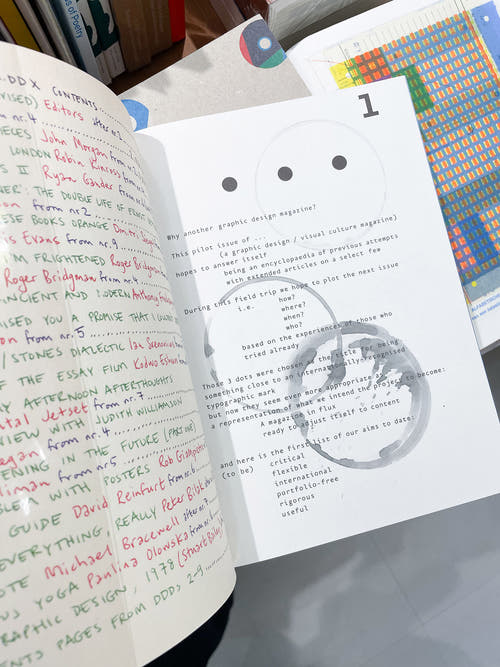 s of Poetry
DDX CONTENTS
VISED) Editors after nr.2
from nr.4
PIECES John Morgan from
LONDON Robin Kinross from nr.
S II Ryan Gander from
HER: THE DOUBLE LIFE OF ERNST
on from nr.2
ESE BOOKS ORANGE Dmitri
is Evans from nr.9
'M FRIGHTENED Roger Bridgman
Roger Bridgman from nr.4
ANCIENT AND MODERN Anthony
MISED YOU A PROMISE THAT I
on from nr.5
/STONES DIALECTIC Ian Svenonius
F THE ESSAY FILM Kodwo Eshun
AY AFTERNOON AFTERTHOUGHTS
tal Jetset from nr.7
VIEW WITH JUDITH WILLIAMSON
egan from nr.4
ENING IN THE FUTURE (PART ONE)
liman from nr.5
BLEM WITH POSTERS Rob Giampietro
GUIDE David Reinfurt from nr.6
EVERYTHING REALLY Peter Bilak
OTE Michael Bracewell after nr.7
US YOGA Paulina Olowska from nr.
GRAPHIC DESIGN, 1978 (Stuart Bailey)
ENTS PAGES FROM DDDs 2-9
1
Why another graphic design magazine?
This pilot issue of ...
(a graphic design / visual culture magazine)
hopes to answer itself
being an encyclopaedia of previous attempts
with extended articles on a select few
During this field trip we hope to plot the next issue
i.e. how?
where?
when?
who?
based on the experiences of those who
tried already
Those 3 dots were chosen as the title for being
something close to an internationally-recognised
typographic mark
but now they seem even more appropriate as
a representation of what we intend the project to become:
A magazine in flux
ready to adjust itself to content
and here is the first list of our aims to date:
(to be) critical
flexible
international
portfolio-free
rigorous
useful